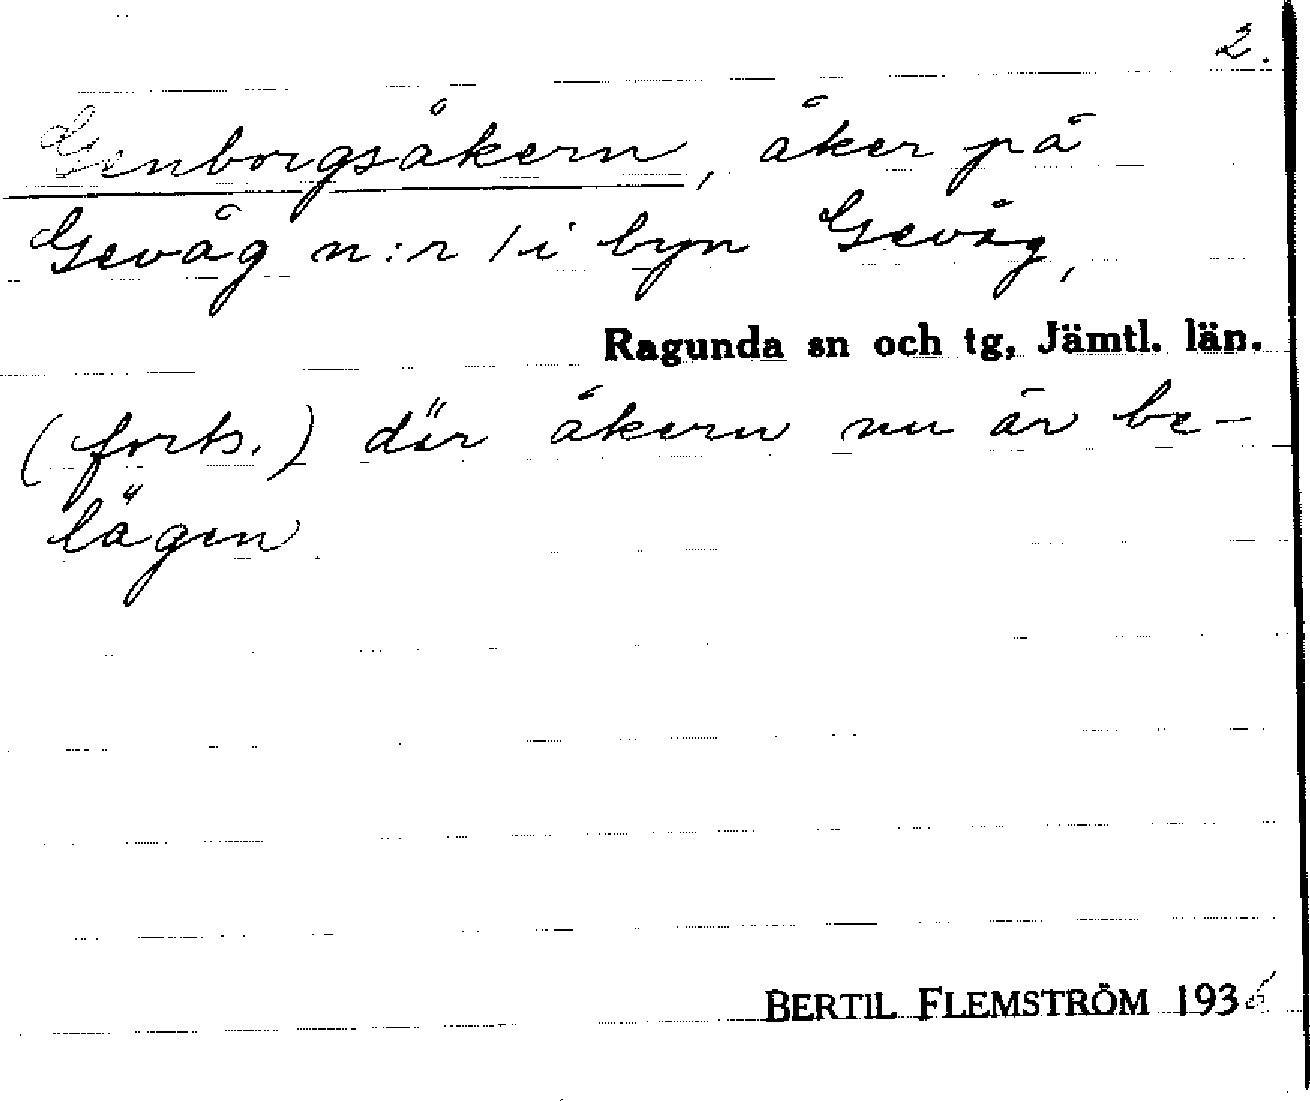 2.
Genborgsåkern, åker på
Gevåg n:r 1 i byn Gevåg,
Ragunda sn och tg, Jämtl. län.
(forts.) där åkern nu är be-
lägen
BERTIL FLEMSTRÖM 1936